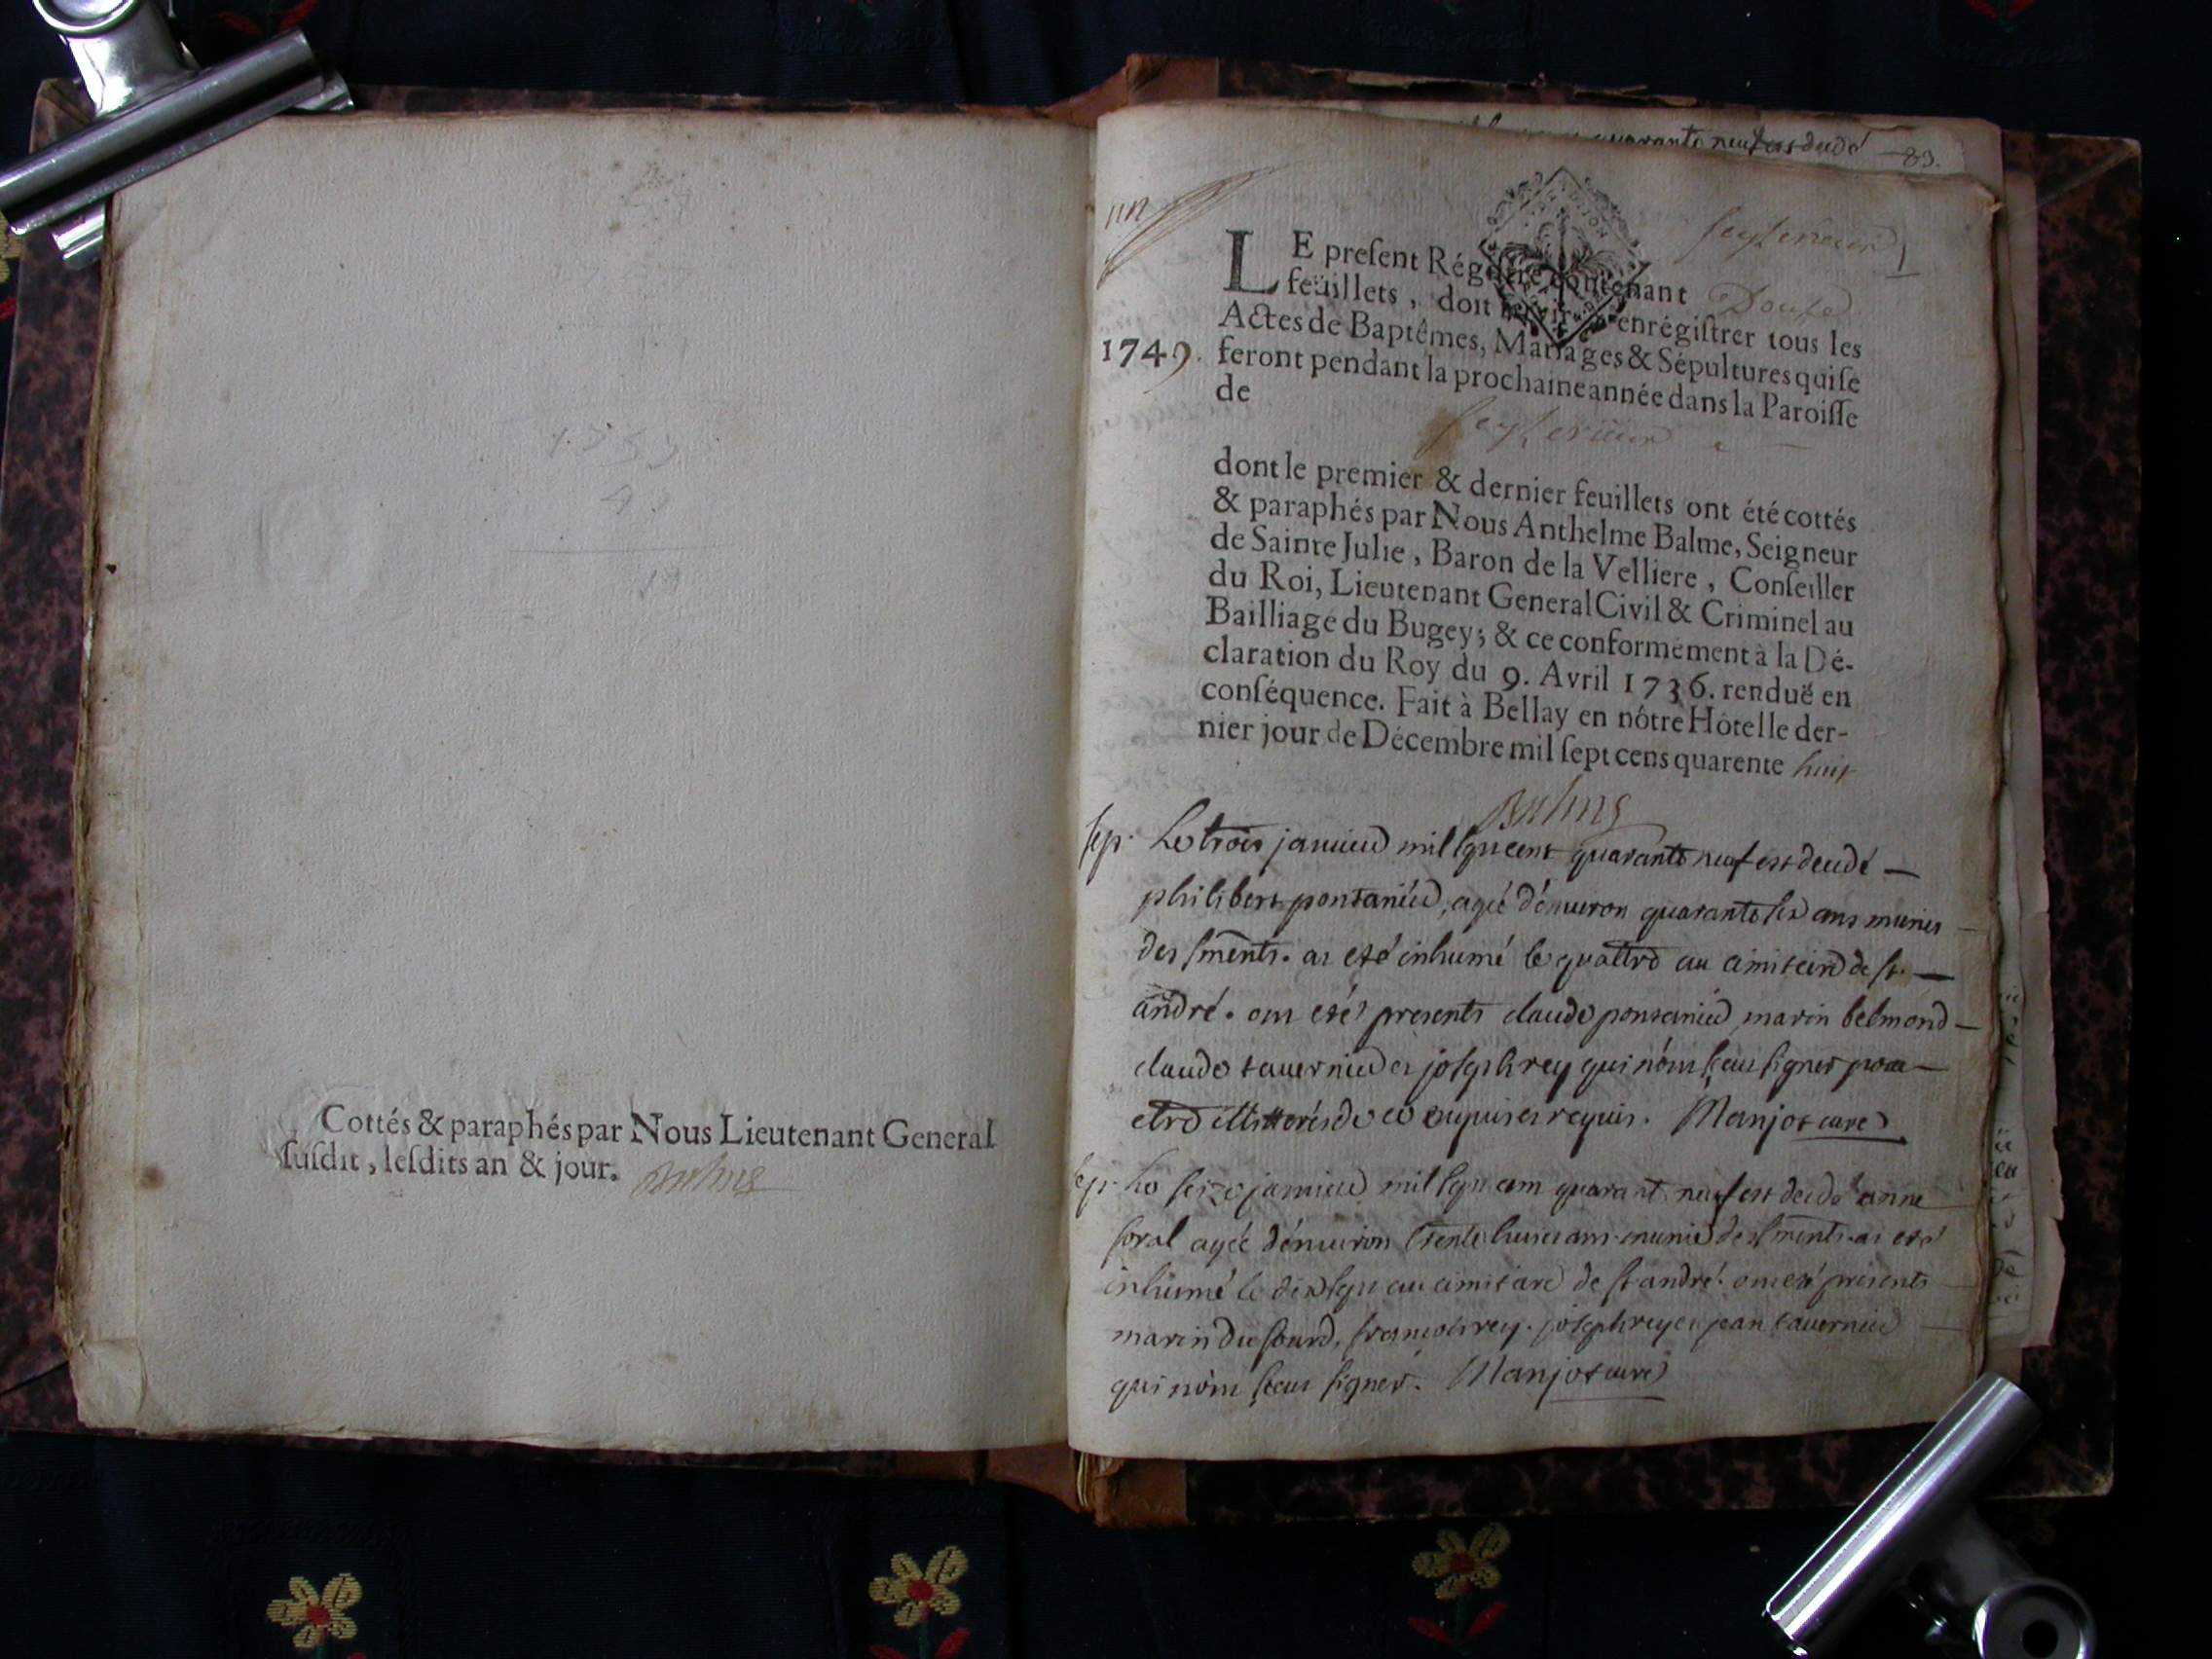 Cottés & paraphés par Nous Lieutenant General
ſuſdit, leſdits an & jour. Balme
quarante neuf est decedé 83.
un
1
LE preſent Régiſtre contenant Douze
feüillets, doit ſervir à enrégiſtrer tous les
Actes de Baptêmes, Mariages & Sépultures qui ſe
1749. feront pendant la prochaine année dans la Paroiſſe
de
dont le premier & dernier feuillets ont été cottés
& paraphés par Nous Anthelme Balme, Seigneur
de Sainte Julie, Baron de la Velliere, Conſeiller
du Roi, Lieutenant General Civil & Criminel au
Bailliage du Bugey; & ce conformément à la Dé-
claration du Roy du 9. Avril 1736. renduë en
conſéquence. Fait à Bellay en nôtre Hôtel le der-
nier jour de Décembre mil ſept cens quarente huit
Balme
sep. Le trois janvier mil sept cent quarante neuf est decedé
philibert pontanier, agé d'environ quarante six ans munis
des sments. at eté inhumé le quattre au cimitaire de st.
andré. ont eté presents claude pontanier marin belmond
claude tavernier et joseph rey qui n'ont sceu signer pour
etre illitterés de ce enquis et requis. Manjot curé
sep. Le seize janvier mil sept cent quarante neuf est decedé anne
soral agée d'environ trente huict ans munie des sments. at eté
inhumé le dix sept au cimitaire de st andré. ont eté présents
marin dufourd, francois rey. joseph rey et jean tavernier
qui n'ont sceu signer. Manjot curé